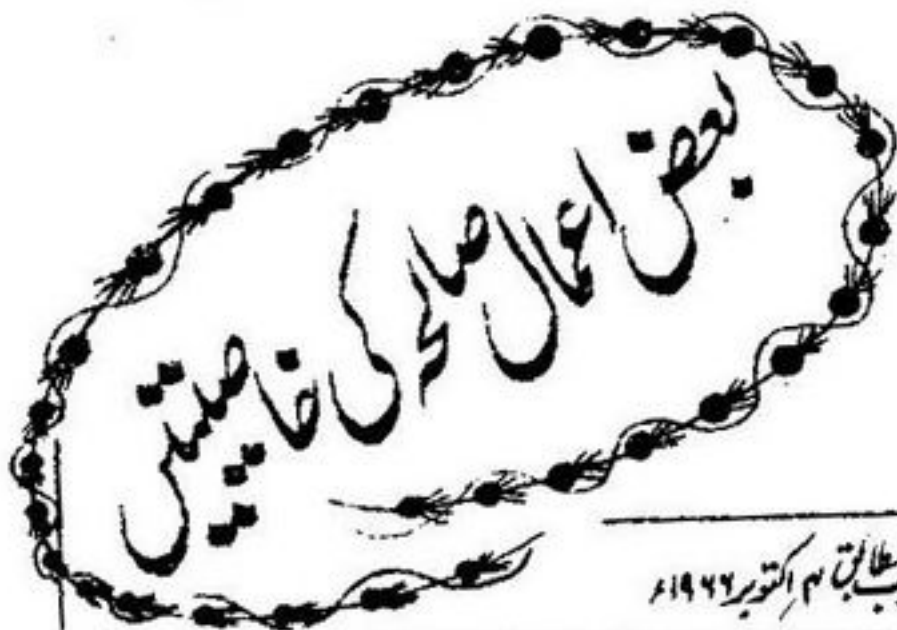 بعض اعمال صالحہ کی خاصیتیں
مطابق ۴ اکتوبر ۱۹۶۶ء